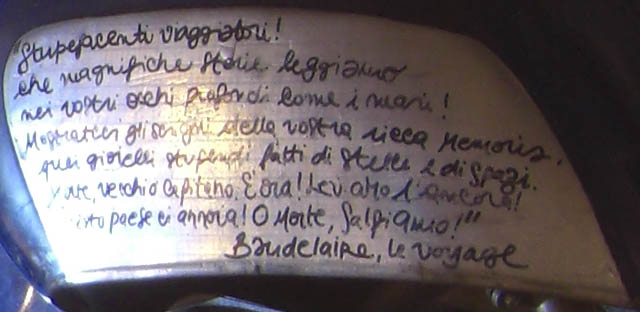 "Stupefacenti viaggiatori!
che magnifiche storie leggiamo
nei vostri occhi profondi come i mari!
Mostrateci gli scrigni della vostra ricca memoria,
quei gioielli stupendi fatti di stelle e di spazi.
vecchio capitano. È ora! Leviamo l'ancora!
paese ci annoia! O Morte, Salpiamo!"
Baudelaire, le voyage